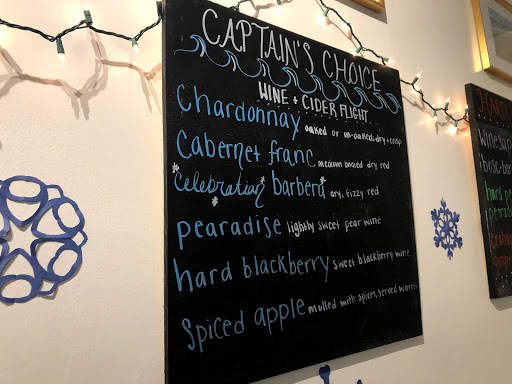 CAPTAIN'S CHOICE
WINE + CIDER FLIGHT
Chardonnay oaked or un-oaked; dry + crisp
Cabernet franc medium bodied dry red
*Celebration* barbera* dry, fizzy red
pearadise lightly sweet pear wine
hard blackberry sweet blackberry wine
Spiced apple mulled with spices, served warm
HARD
hard